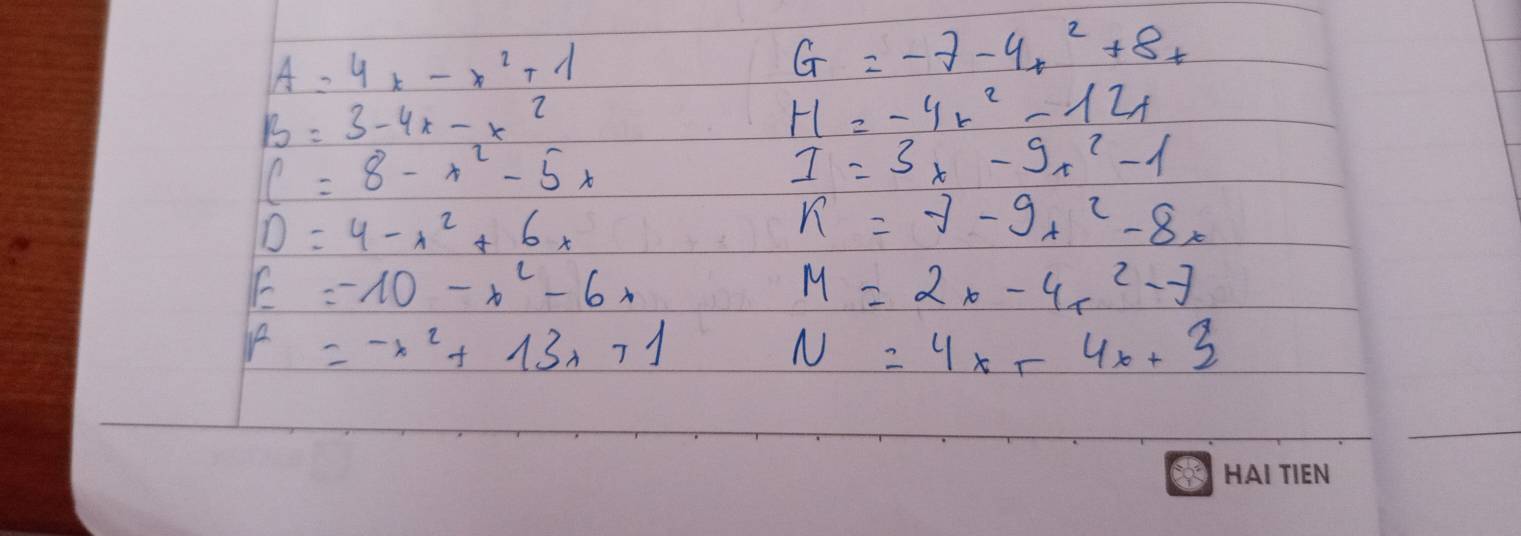 A = 4x - x² + 1
B = 3 - 4x - x²
C = 8 - x² - 5x
D = 4 - x² + 6x
E = -10 - x² - 6x
F = -x² + 13x + 1
G = -7 - 4x² + 8x
H = -4x² - 12x
I = 3x - 9x² - 1
K = 7 - 9x² - 8x
M = 2x - 4x² - 7
N = 4x - 4x + 3
HAI TIEN